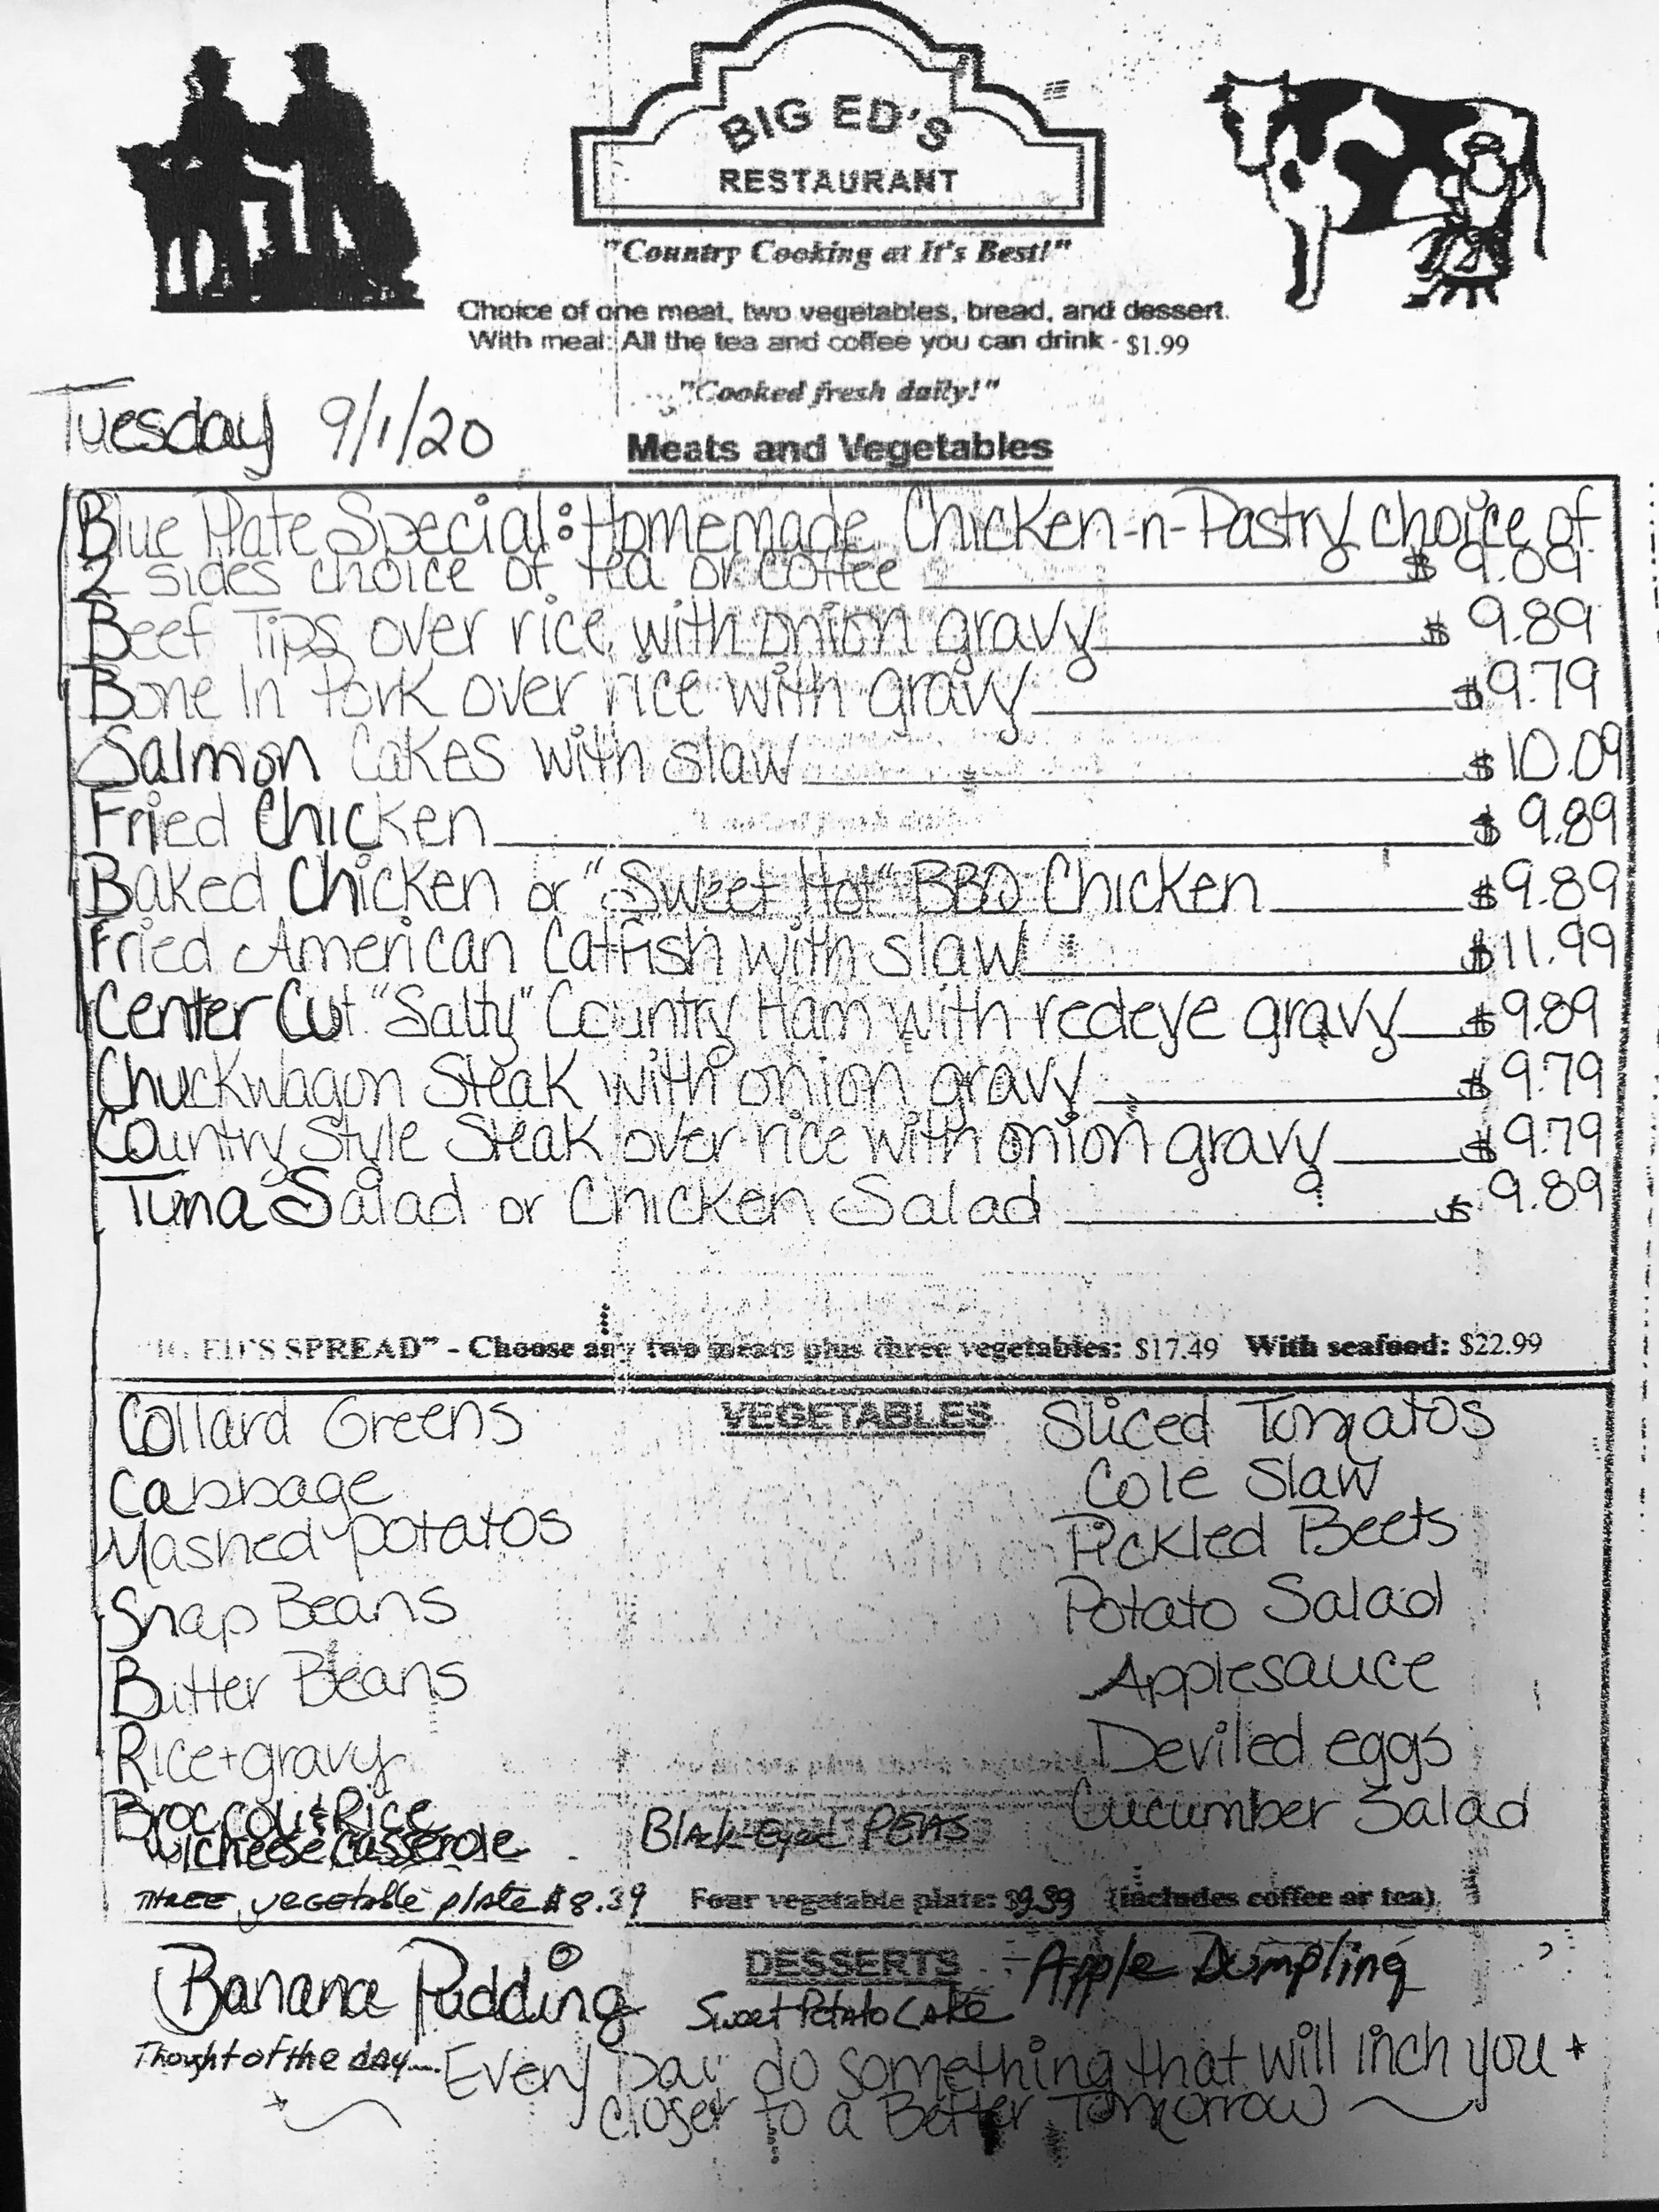 BIG ED'S
RESTAURANT
"Country Cooking at It's Best!"
Choice of one meat, two vegetables, bread, and dessert.
With meal: All the tea and coffee you can drink - $1.99
"Cooked fresh daily!"
Tuesday 9/1/20
Meats and Vegetables
Blue Plate Special: Homemade Chicken-n-Pastry choice of
2 sides choice of tea or coffee $ 9.09
Beef Tips over rice with onion gravy $ 9.89
Bone In Pork over rice with gravy $ 9.79
Salmon Cakes with slaw $ 10.09
Fried Chicken $ 9.89
Baked Chicken or "Sweet Hot" BBQ Chicken $ 9.89
Fried American Catfish with slaw $ 11.99
Center Cut "Salty" Country Ham with redeye gravy $ 9.89
Chuckwagon Steak with onion gravy $ 9.79
Country Style Steak over rice with onion gravy $ 9.79
Tuna Salad or Chicken Salad $ 9.89
ED'S SPREAD" - Choose any two meats plus three vegetables: $17.49 With seafood: $22.99
VEGETABLES
Collard Greens
Cabbage
Mashed potatos
Snap Beans
Butter Beans
Rice + gravy
Broccoli & Rice
w/cheese casserole
Black-Eyed PEAS
Sliced Tomatos
Cole Slaw
Pickled Beets
Potato Salad
Applesauce
Deviled eggs
Cucumber Salad
THREE vegetable plate $8.39 Four vegetable plate: $9.39 (includes coffee or tea)
DESSERTS
Banana Pudding Sweet Potato Cake Apple Dumpling
Thought of the day.... Every Day do something that will inch you
closer to a Better Tomorrow